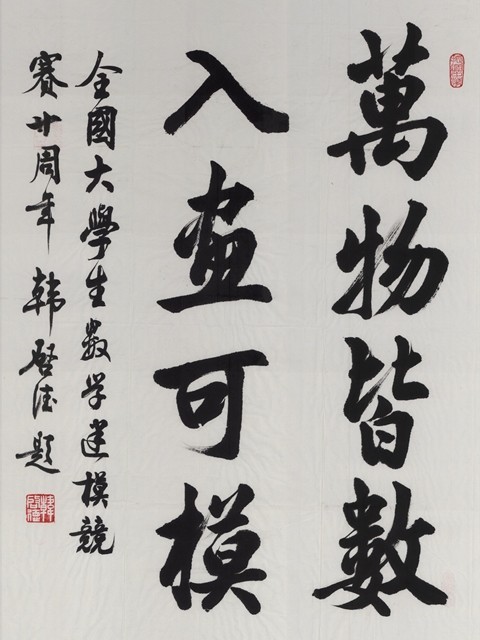 萬物皆數
入畫可模
全國大學生数学建模競
賽廿周年 韩启德题